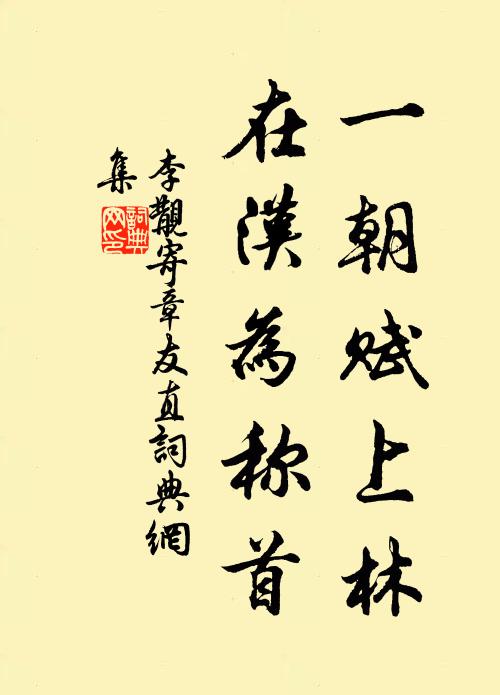 一朝赋上林
在漢為称首
李覯寄章友直詞典網
集
詞典網印